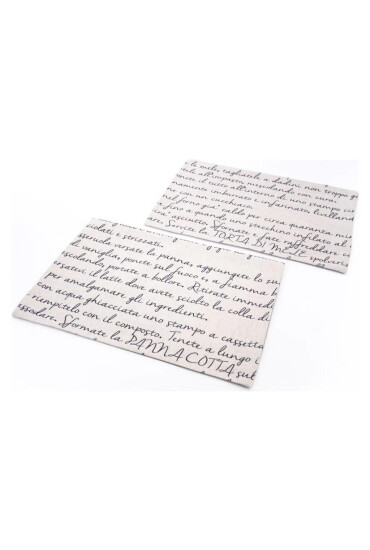 le mele, tagliando a dadini non troppo
all'impasto mescolando con cura.
mete il tutto all'interno di uno stampo
namente imburrato e infarinato, livellando
con un cucchiaio.
nel forno già caldo per circa quaranta mi
fino a quando uno stecchino infilato al
asciutto. Sformate e fate raffreddare
are. Servite la TORTA DI MELE spolveriz
olati e strizzati.
asseruola versate la panna, aggiungete lo zu
di vaniglia; ponete sul fuoco e, a fiamma b
escolando, portate a bollore. Ritirate immedi
satevi il latte dove avete sciolto la colla di
per amalgamare gli ingredienti.
con acqua ghiacciata uno stampo a cassetta
riempitelo con il composto. Tenete a lungo i
ssodare. Sformate la PANNA COTTA sul